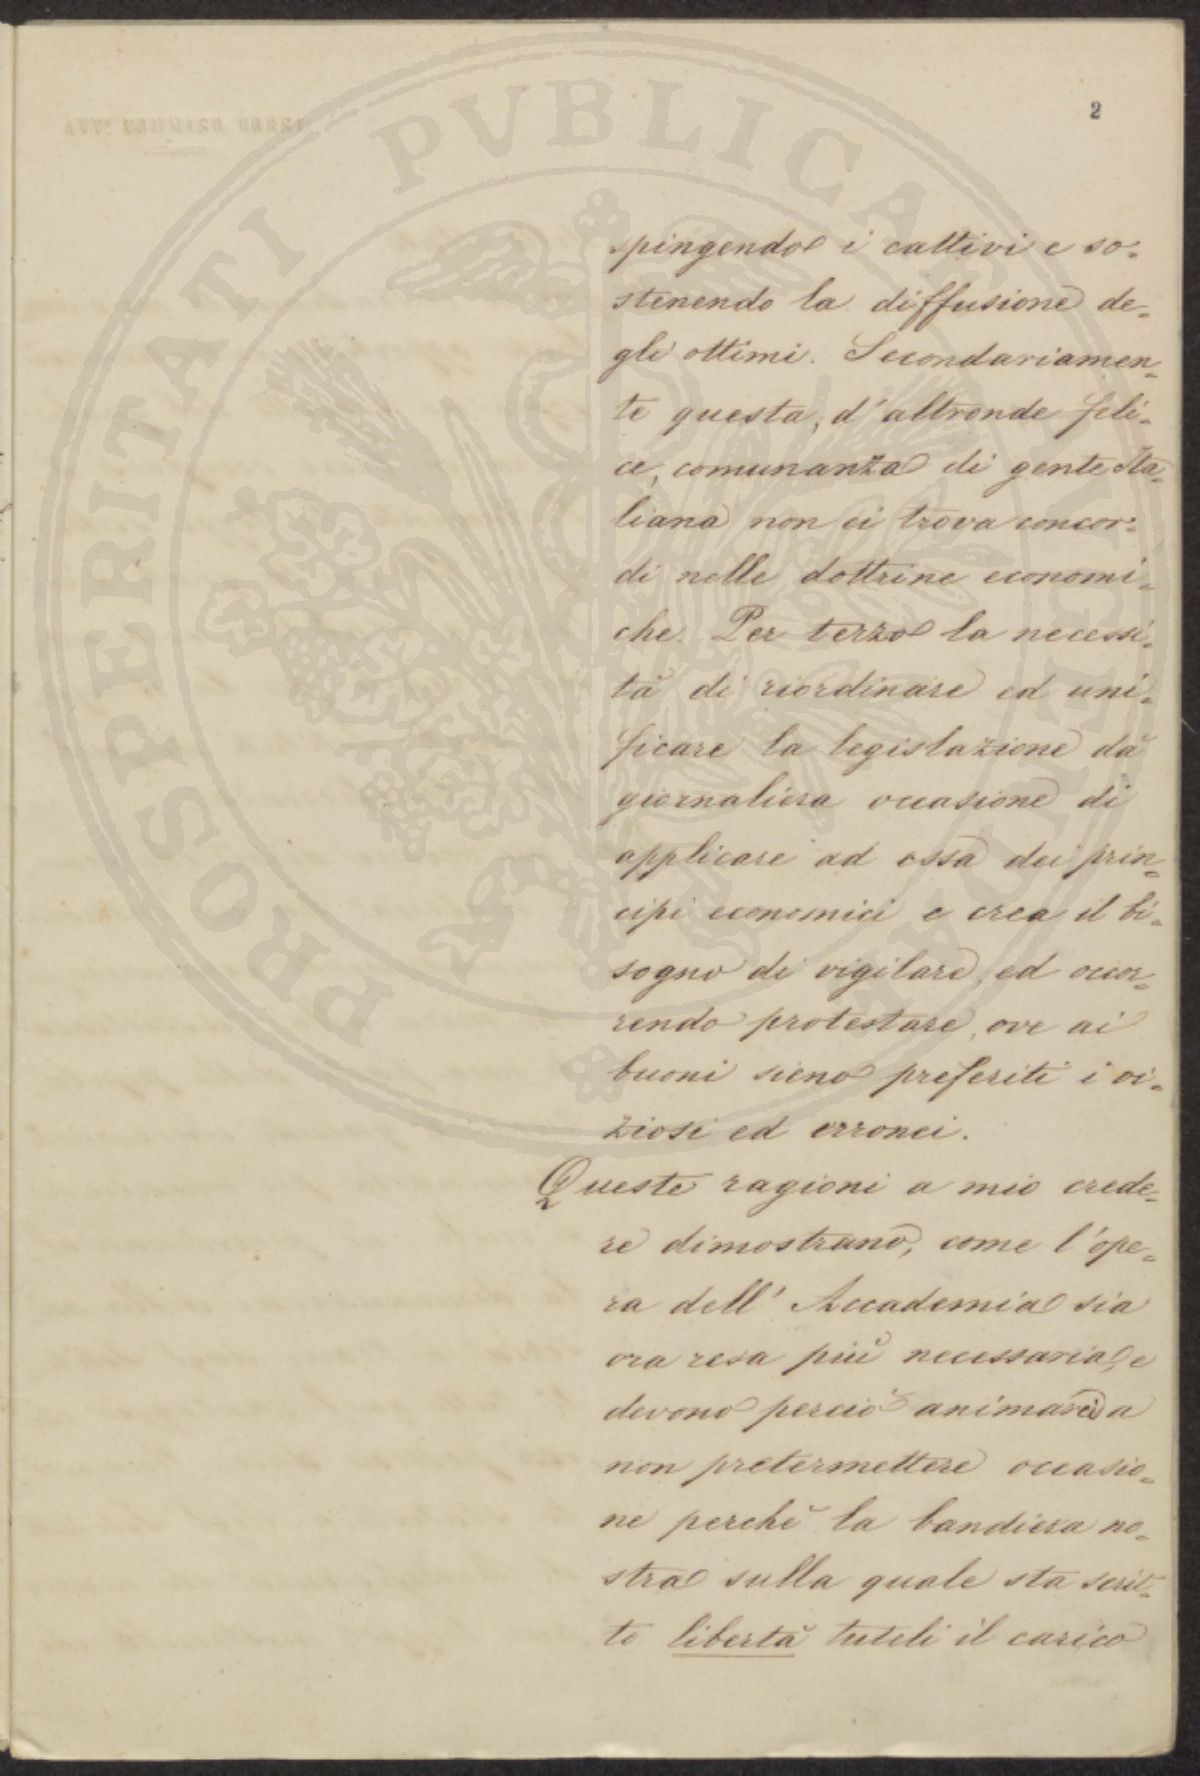 2
PROSPERITATI PVBLICAE
spingendo i cattivi e so-
stenendo la diffusione de-
gli ottimi. Secondariamen-
te questa, d'altronde feli-
ce, comunanza di gente Ita-
liana non ci trova concor-
di nelle dottrine economi-
che. Per terzo la necessi-
tà di riordinare ed uni-
ficare la legislazione dà
giornaliera occasione di
applicare ad essa dei prin-
cipi economici e crea il bi-
sogno di vigilare, ed occor-
rendo protestare, ove ai
buoni sieno preferiti i vi-
ziosi ed erronei.
Queste ragioni a mio crede-
re dimostrano, come l'ope-
ra dell'Accademia sia
ora resa più necessaria, e
devono perciò animarci a
non pretermettere occasio-
ne perchè la bandiera no-
stra sulla quale sta scrit-
to libertà tuteli il carico